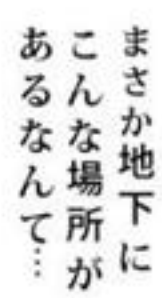 まさか地下に
こんな場所が
あるなんて…